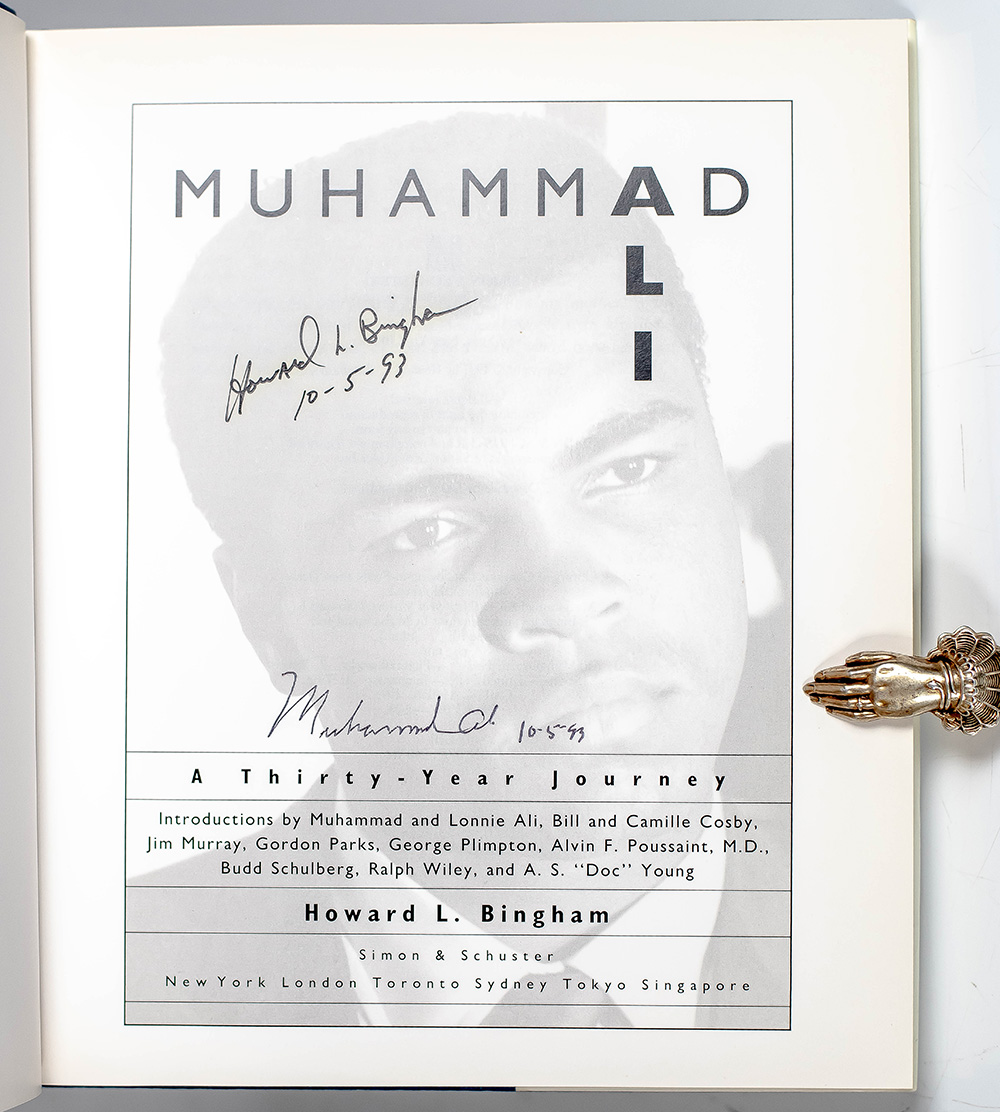 MUHAMMAD
ALI
Howard L. Bingham
10-5-93
Muhammad Ali 10-5-93
A Thirty-Year Journey
Introductions by Muhammad and Lonnie Ali, Bill and Camille Cosby,
Jim Murray, Gordon Parks, George Plimpton, Alvin F. Poussaint, M.D.,
Budd Schulberg, Ralph Wiley, and A. S. “Doc” Young
Howard L. Bingham
Simon & Schuster
New York London Toronto Sydney Tokyo Singapore